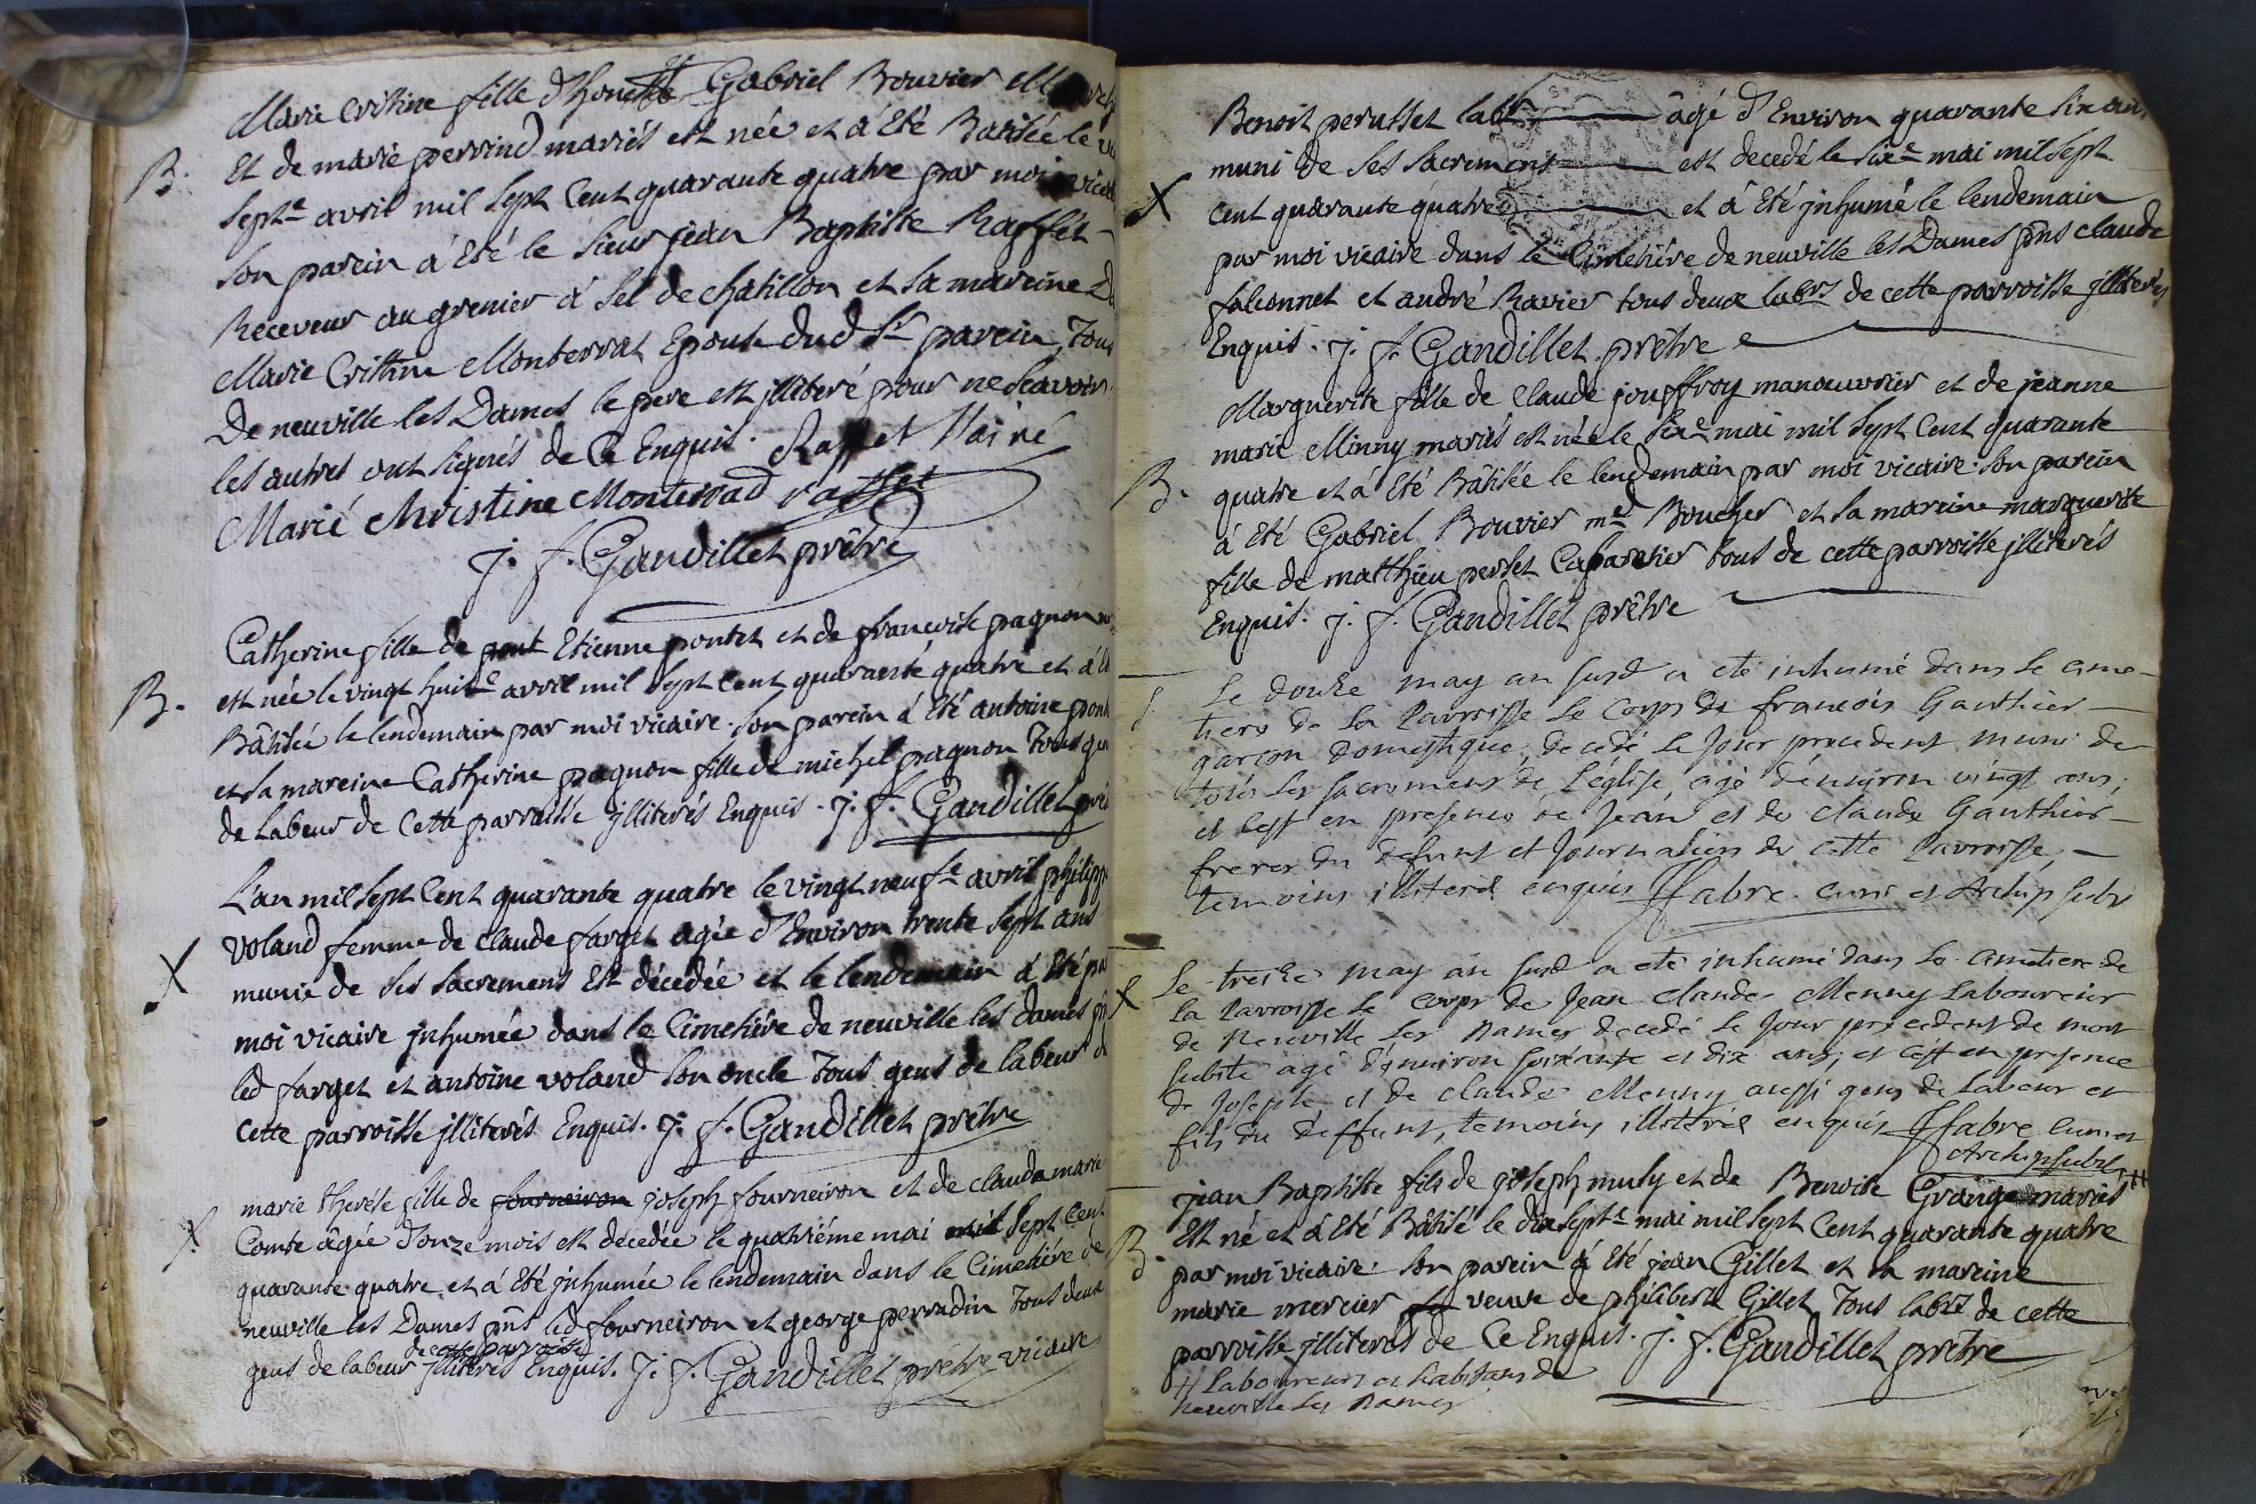 Marie Cristine fille d'honete Gabriel Bouvier
B. Et de marie perrind mariés est née et a Eté Batisée le
septe avril mil sept Cent quarante quatre par moi
son parein á Eté le sieur jean Baptiste Raffet
Receveur au grenier a sel de chatillon et sa mareine
Marie Cristine Monterrat Epouse dud Sr parein, Tous
De neuville les Dames le pere est jlliteré pour ne scavoir
les autres ont signés de Ce Enquis. Raffet
Marié christine Monterrad raffet
j. f. Gandillet prêtre
Catherine fille de Etienne pontet et de francoise pagnon
B. est née le vingt huite avril mil sept Cent quarante quatre et á
Bâtisée le lendemain par moi vicaire. son parein á Eté antoine
et sa mareine Catherine pagnon fille de michel pagnon Tous
de labeur de Cette parroisse jlliterés Enquis. j. f. Gandillet
L'an mil sept Cent quarante quatre le vingt neufe avril
X voland femme de claude farget agée d'Environ trente sept ans
munie de ses sacremens Est décedée et le lendemain á Eté
moi vicaire jnhumée dans le Cimetiére de neuville les dames
led farget et antoine voland son oncle Tous gens de labeur
cette parroisse jlliterés Enquis. j. f. Gandillet prêtre
marie therése fille de fourneiron joseph fourneiron et de clauda marie
X Comte âgée d'onze mois est décedée le quatriéme mai mil sept Cent
quarante quatre et á Eté jnhumée le lendemain dans le Cimetiére de
neuville les Dames pns led fourneiron et george perradin Tous deux
de cette parroisse
gens de labeur jlliterés Enquis. j. f. Gandillet prétre vicaire
Benoit perusset labr âgé d'Environ quarante six
muni de ses sacremens est decedé le sixe mai mil sept
X cent quarante quatre et á Eté jnhumé le lendemain
par moi vicaire dans le Cimetiére de neuville les Dames pns claude
falconnet et andré Ravier tous deux labrs de cette parroisse jlliterés
Enquis. j. f. Gandillet prêtre
Marguerite fille de claude jouffroy manouvrier et de jeanne
marie Minny mariés est née le sixe mai mil sept Cent quarante
B. quatre et á Eté Bâtisée le lendemain par moi vicaire. son parein
á Eté Gabriel Bouvier md Boucher et sa mareine marguerite
fille de matthieu perset Cabaretier tous de cette parroisse jlliterés
Enquis. j. f. Gandillet prêtre
Le douze may an susd a eté inhumé dans le cime-
tiere de la Parroisse le Corps de francois Gauthier
garcon domestique, decedé le jour precedent muni de
tous les sacremens de L'église, agé d'environ vingt ans;
et c'est en presence de Jean et de claude Gauthier
freres du defunt et Journaliers de cette Parroisse,
temoins illiterés enquis Ffabre curé et Archip
Le treize may an susd a eté inhumé dans le cimetiere de
X la Parroisse le Corps de Jean claude Menny Laboureur
de Neuville les Dames decedé le jour precedent de mort
subite agé d'environ soixante et dix ans, et c'est en presence
de Joseph et de claude Menny aussi gens de Labeur et
fils du deffunt, temoins illiterés enquis Ffabre curé et
Archip
jean Baptiste fils de joseph muly et de Benoite Grange mariés #
B. Est né et á Eté Bâtisé le dix septe mai mil sept Cent quarante quatre
par moi vicaire. son parein á Eté jean Gillet et sa mareine
marie mercier veuve de philibert Gillet Tous labrs de cette
parroisse jlliterés de Ce Enquis. j. f. Gandillet prêtre
# Laboureurs et habitans de
neuville les Dames